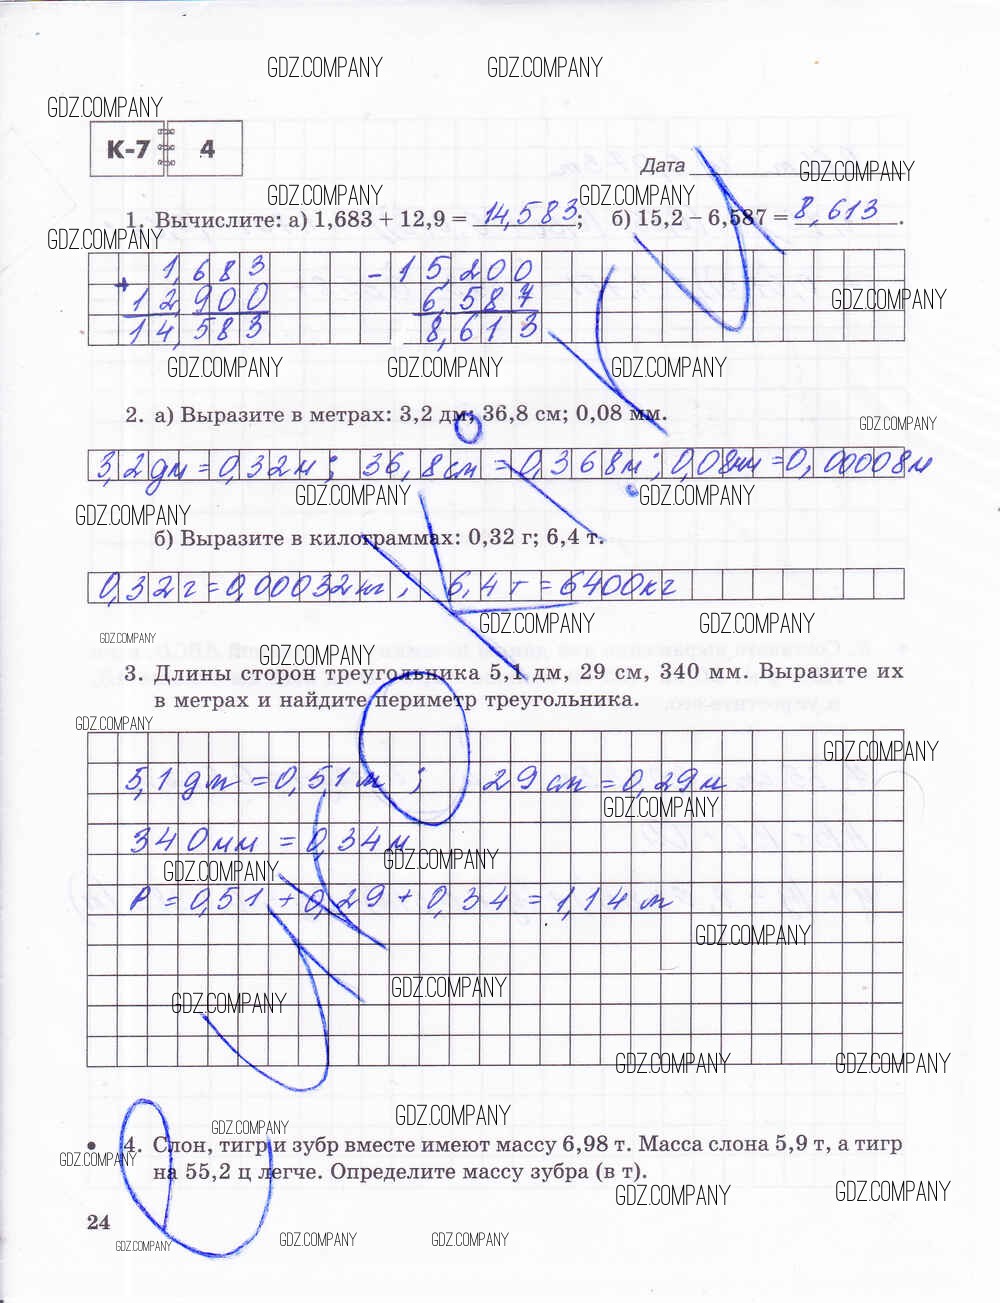 GDZ.COMPANY GDZ.COMPANY
GDZ.COMPANY
К-7 4
Дата
GDZ.COMPANY
GDZ.COMPANY GDZ.COMPANY
1. Вычислите: а) 1,683 + 12,9 = 14,583; б) 15,2 – 6,587 = 8,613.
GDZ.COMPANY
1,683 – 15,200
+
12,900 6,587
GDZ.COMPANY
14,583 8,613
GDZ.COMPANY GDZ.COMPANY GDZ.COMPANY
2. а) Выразите в метрах: 3,2 дм; 36,8 см; 0,08 мм.
GDZ.COMPANY
3,2дм = 0,32м; 36,8см = 0,368м; 0,08мм = 0,00008м
GDZ.COMPANY GDZ.COMPANY
GDZ.COMPANY
б) Выразите в килограммах: 0,32 г; 6,4 т.
0,32г = 0,00032кг; 6,4т = 6400кг
GDZ.COMPANY GDZ.COMPANY
GDZ.COMPANY
GDZ.COMPANY
3. Длины сторон треугольника 5,1 дм, 29 см, 340 мм. Выразите их
в метрах и найдите периметр треугольника.
GDZ.COMPANY
GDZ.COMPANY
5,1дм = 0,51м; 29см = 0,29м
GDZ.COMPANY
340мм = 0,34м
GDZ.COMPANY GDZ.COMPANY
P = 0,51 + 0,29 + 0,34 = 1,14м
GDZ.COMPANY
GDZ.COMPANY GDZ.COMPANY
GDZ.COMPANY GDZ.COMPANY
GDZ.COMPANY
GDZ.COMPANY
• 4. Слон, тигр и зубр вместе имеют массу 6,98 т. Масса слона 5,9 т, а тигр
GDZ.COMPANY
на 55,2 ц легче. Определите массу зубра (в т).
GDZ.COMPANY GDZ.COMPANY
24
GDZ.COMPANY GDZ.COMPANY GDZ.COMPANY